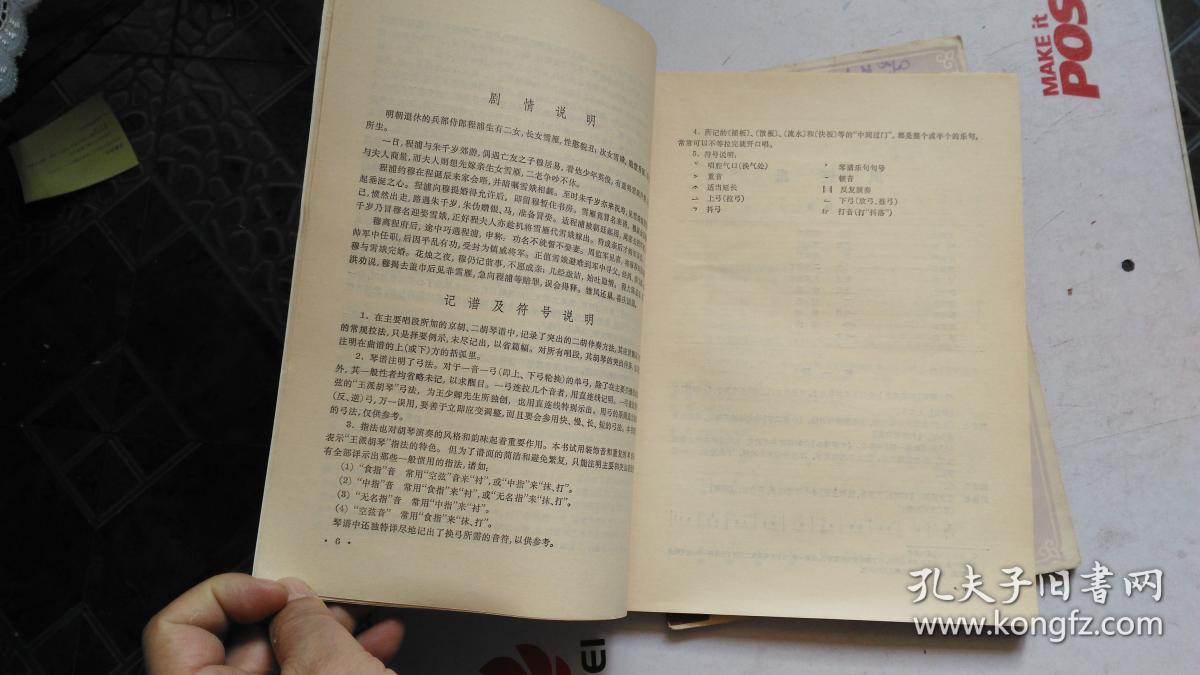 剧情说明
明朝退休的兵部侍郎程浦生有二女，长女雪雁，性憨貌丑；次女雪娥，聪慧秀丽，
所生。
一日，程浦与朱千岁郊游，偶遇亡友之子穆居易，看他少年英俊，有意
与夫人商量，而夫人则想先嫁亲生女雪雁，二老争吵不休。
程浦约穆在程诞辰来家会晤，并陪嘱雪娥相觑。至时朱千岁亦来祝寿，见
起垂涎之心。程浦向穆提婚得允许后，即留穆暂住书房。雪雁竟冒名来
已，愤然出走，路遇朱千岁，朱伪赠银、马，准备冒娶。适程浦被朝廷起用，
千岁乃冒穆名迎娶雪娥，正好程夫人亦趁机将雪雁代雪娥嫁出。待成亲后才
穆离程府后，途中巧遇程浦，申称：功名不就誓不娶妻。周监军见喜，
帅军中任职，后因平乱有功，受封为镇威将军。正值雪娥避难到军中寻父，
穆与雪娥完婚。花烛之夜，穆仍记前事，不愿成亲；几经盘诘，始吐隐情。
洪劝说，穆揭去盖巾后见非雪雁，急向程浦等赔罪，误会得释。雏凤还巢，喜庆团圆。
记谱及符号说明
1、在主要唱段所加的京胡、二胡琴谱中，记录了突出的二胡伴奏方法，其
的常规拉法，只是择要例示，未尽记出，以省篇幅。对所有唱段，其胡琴的突出伴奏，
注明在曲谱的上（或下）方的括弧里。
2、琴谱注明了弓法。对于一音一弓（即上、下弓轮换）的单弓，除了在主要
外，其一般性者均省略未记，以求醒目。一弓连拉几个音者，用直连线记明。一弓
弦的“王派胡琴”弓法，为王少卿先生所独创，也用直连线特别示出。用弓的原则是
（反、逆）弓，万一误用，要善于立即应变调整，而且要会参用快、慢、长、短的弓法，
的弓法，仅供参考。
3、指法也对胡琴演奏的风格和韵味起着重要作用。本书试用装饰音和重复的
表示“王派胡琴”指法的特色。但为了谱面的简洁和避免繁复，只能注明主要和突出
有全部详示出那些一般惯用的指法，诸如：
（1）“食指”音　常用“空弦”音来“衬”，或“中指”来“抹、打”。
（2）“中指”音　常用“食指”来“衬”，或“无名指”来“抹、打”。
（3）“无名指”音　常用“中指”来“衬”。
（4）“空弦音”　常用“食指”来“抹、打”。
琴谱中还独特详尽地记出了换弓所需的音符，以供参考。
·6·
4、所记的〔摇板〕、〔散板〕、〔流水〕和〔快板〕等的“中间过门”，都是整个或半个的乐句，
常常可以不等拉完就开口唱。
5、符号说明：
唱腔气口（换气处）
琴谱乐句句号
重音
顿音
适当延长
反复演奏
上弓（拉弓）
下弓（放弓、推弓）
抖弓
打音（打“抖落”）
MAKE it
POS
EI
孔夫子旧书网
www.kongfz.com